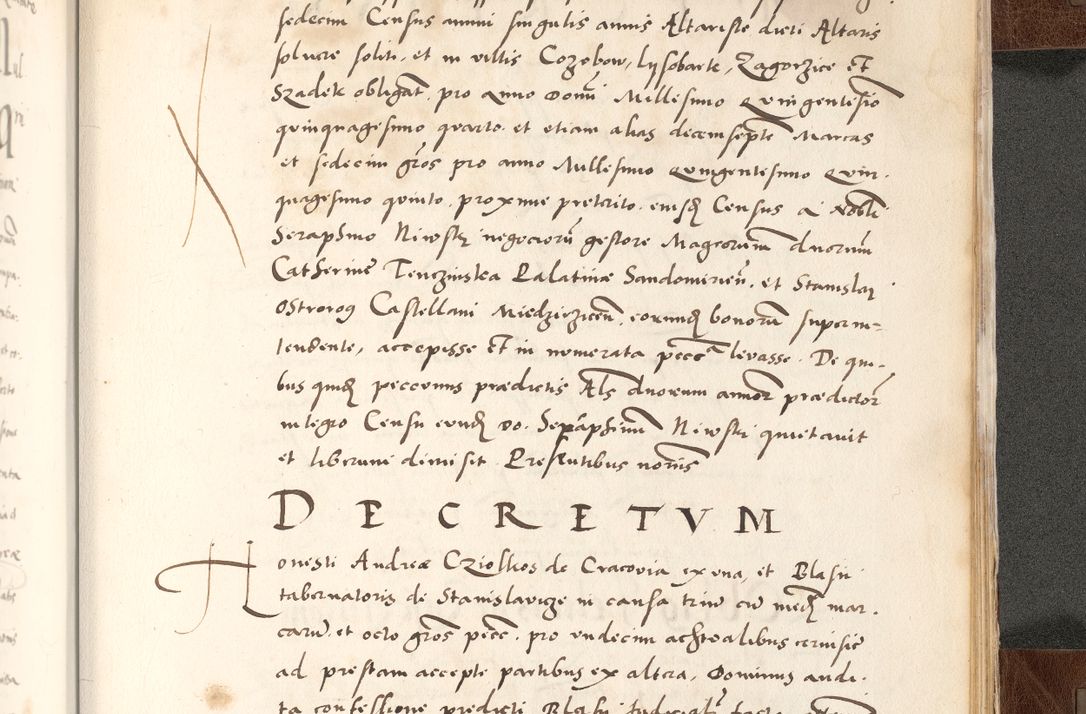 sedecim Census annui singulis annis Altariste dicti Altaris
soluere soliti, et in villis Cozobow, Lyssobark, Zagorzice et
Szadek obligat. pro anno Domi Millesimo Quingentesio
quinquagesimo quarto. et etiam alias decemsepte Marcas
et sedecim gros pro anno Millesimo Quingentesimo Quin-
quagesimo quinto. proxime preterito. eiusd Census a Nobili
Seraphino Niewski negociorū gestore Magcorum dnorum
Catherine Tenczinska Palatinæ Sandomirien. et Stanislai
Ostrorog Castellani Miedzirziceñ, eorumd bonorū superin-
tendente, accepisse et in numerata pecca levasse. De qui-
bus quid peccuniis prædictis Als duorum annor prædictor
integro Censu eund do. Seraphinum Niewski quietavit
et liberum dimisit Presentibus nominis
DECRETVM
Honesti Andreæ Cziolkos de Cracovia ex una, et Blasii
tabernatoris de Stanislavicze in causa triū cū med mar-
carū. et octo gros pecc. pro undecim achtealibus cervisiē
ad prestam accepte partibus ex altera, Dominus audi-
ta confessione predicti Blasii Judicialr facta